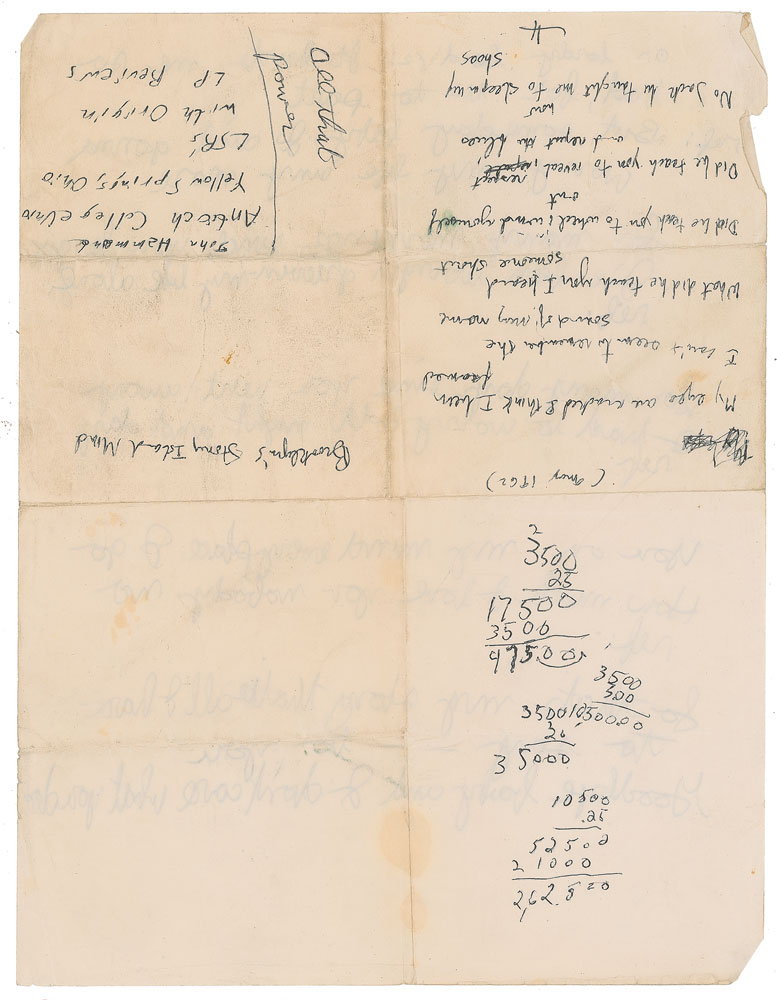 (May 1962)
My eyes are cracked I think I been
framed
I can't seem to remember the
sound of my name
What did he teach you I heard
someone shout
Did he teach you to wheel & wind yourself
out
Did he teach you to reveal, respect
and repeat the blues
No Jack he taught me how to sleep in my
shoes
Brooklyn's Stony Island Mind
John Hammond
Antioch College
Yellow Springs, Ohio
with Origin
LP Reviews
all that
power
2
3500
25
17500
3500
3500
300
3500
35000
10500
.25
52500
21000